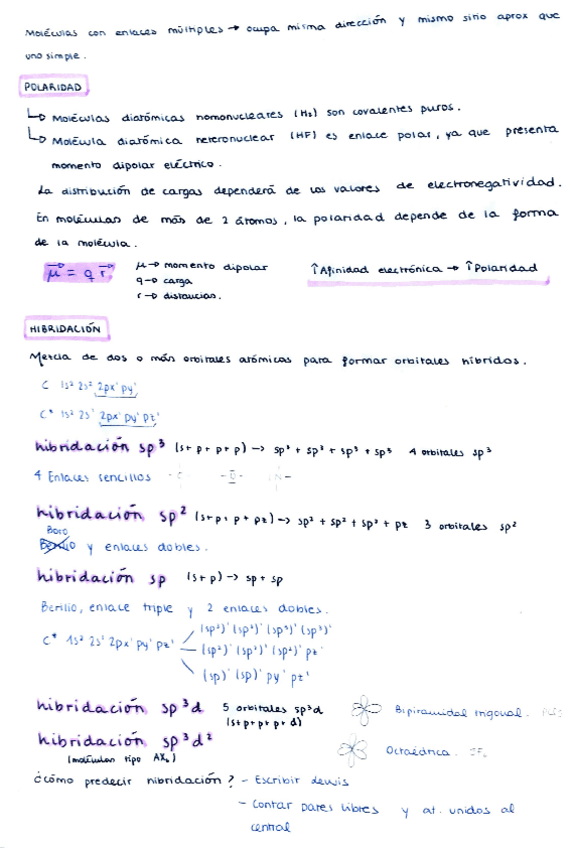 Moléculas con enlaces múltiples → ocupa misma dirección y mismo sitio aprox que
uno simple.
POLARIDAD
↳ Moléculas diatómicas homonucleares (H₂) son covalentes puros.
↳ Molécula diatómica heteronuclear (HF) es enlace polar, ya que presenta
momento dipolar eléctrico.
La distribución de cargas dependerá de los valores de electronegatividad.
En moléculas de más de 2 átomos, la polaridad depende de la forma
de la molécula.
μ⃗ = q r⃗
μ → momento dipolar
q → carga
r → distancias.
↑Afinidad electrónica → ↑Polaridad
HIBRIDACIÓN
Mezcla de dos o más orbitales atómicos para formar orbitales híbridos.
C 1s² 2s² 2px¹ py¹
C* 1s² 2s¹ 2px¹ py¹ pz¹
hibridación sp³ (s+p+p+p) → sp³ + sp³ + sp³ + sp³ 4 orbitales sp³
4 Enlaces sencillos -C- -O- -N-
hibridación sp² (s+p+p+pz) → sp² + sp² + sp² + pz 3 orbitales sp²
Boro
y enlaces dobles.
hibridación sp (s+p) → sp + sp
Berilio, enlace triple y 2 enlaces dobles.
(sp³)¹ (sp³)¹ (sp³)¹ (sp³)¹
C* 1s² 2s¹ 2px¹ py¹ pz¹ (sp²)¹ (sp²)¹ (sp²)¹ pz¹
(sp)¹ (sp)¹ py¹ pz¹
hibridación sp³d 5 orbitales sp³d Bipiramidal trigonal.
(s+p+p+p+d)
hibridación sp³d² Octaédrica.
(moléculas tipo AX₆)
¿cómo predecir hibridación? - Escribir Lewis
- Contar pares libres y at. unidos al
central